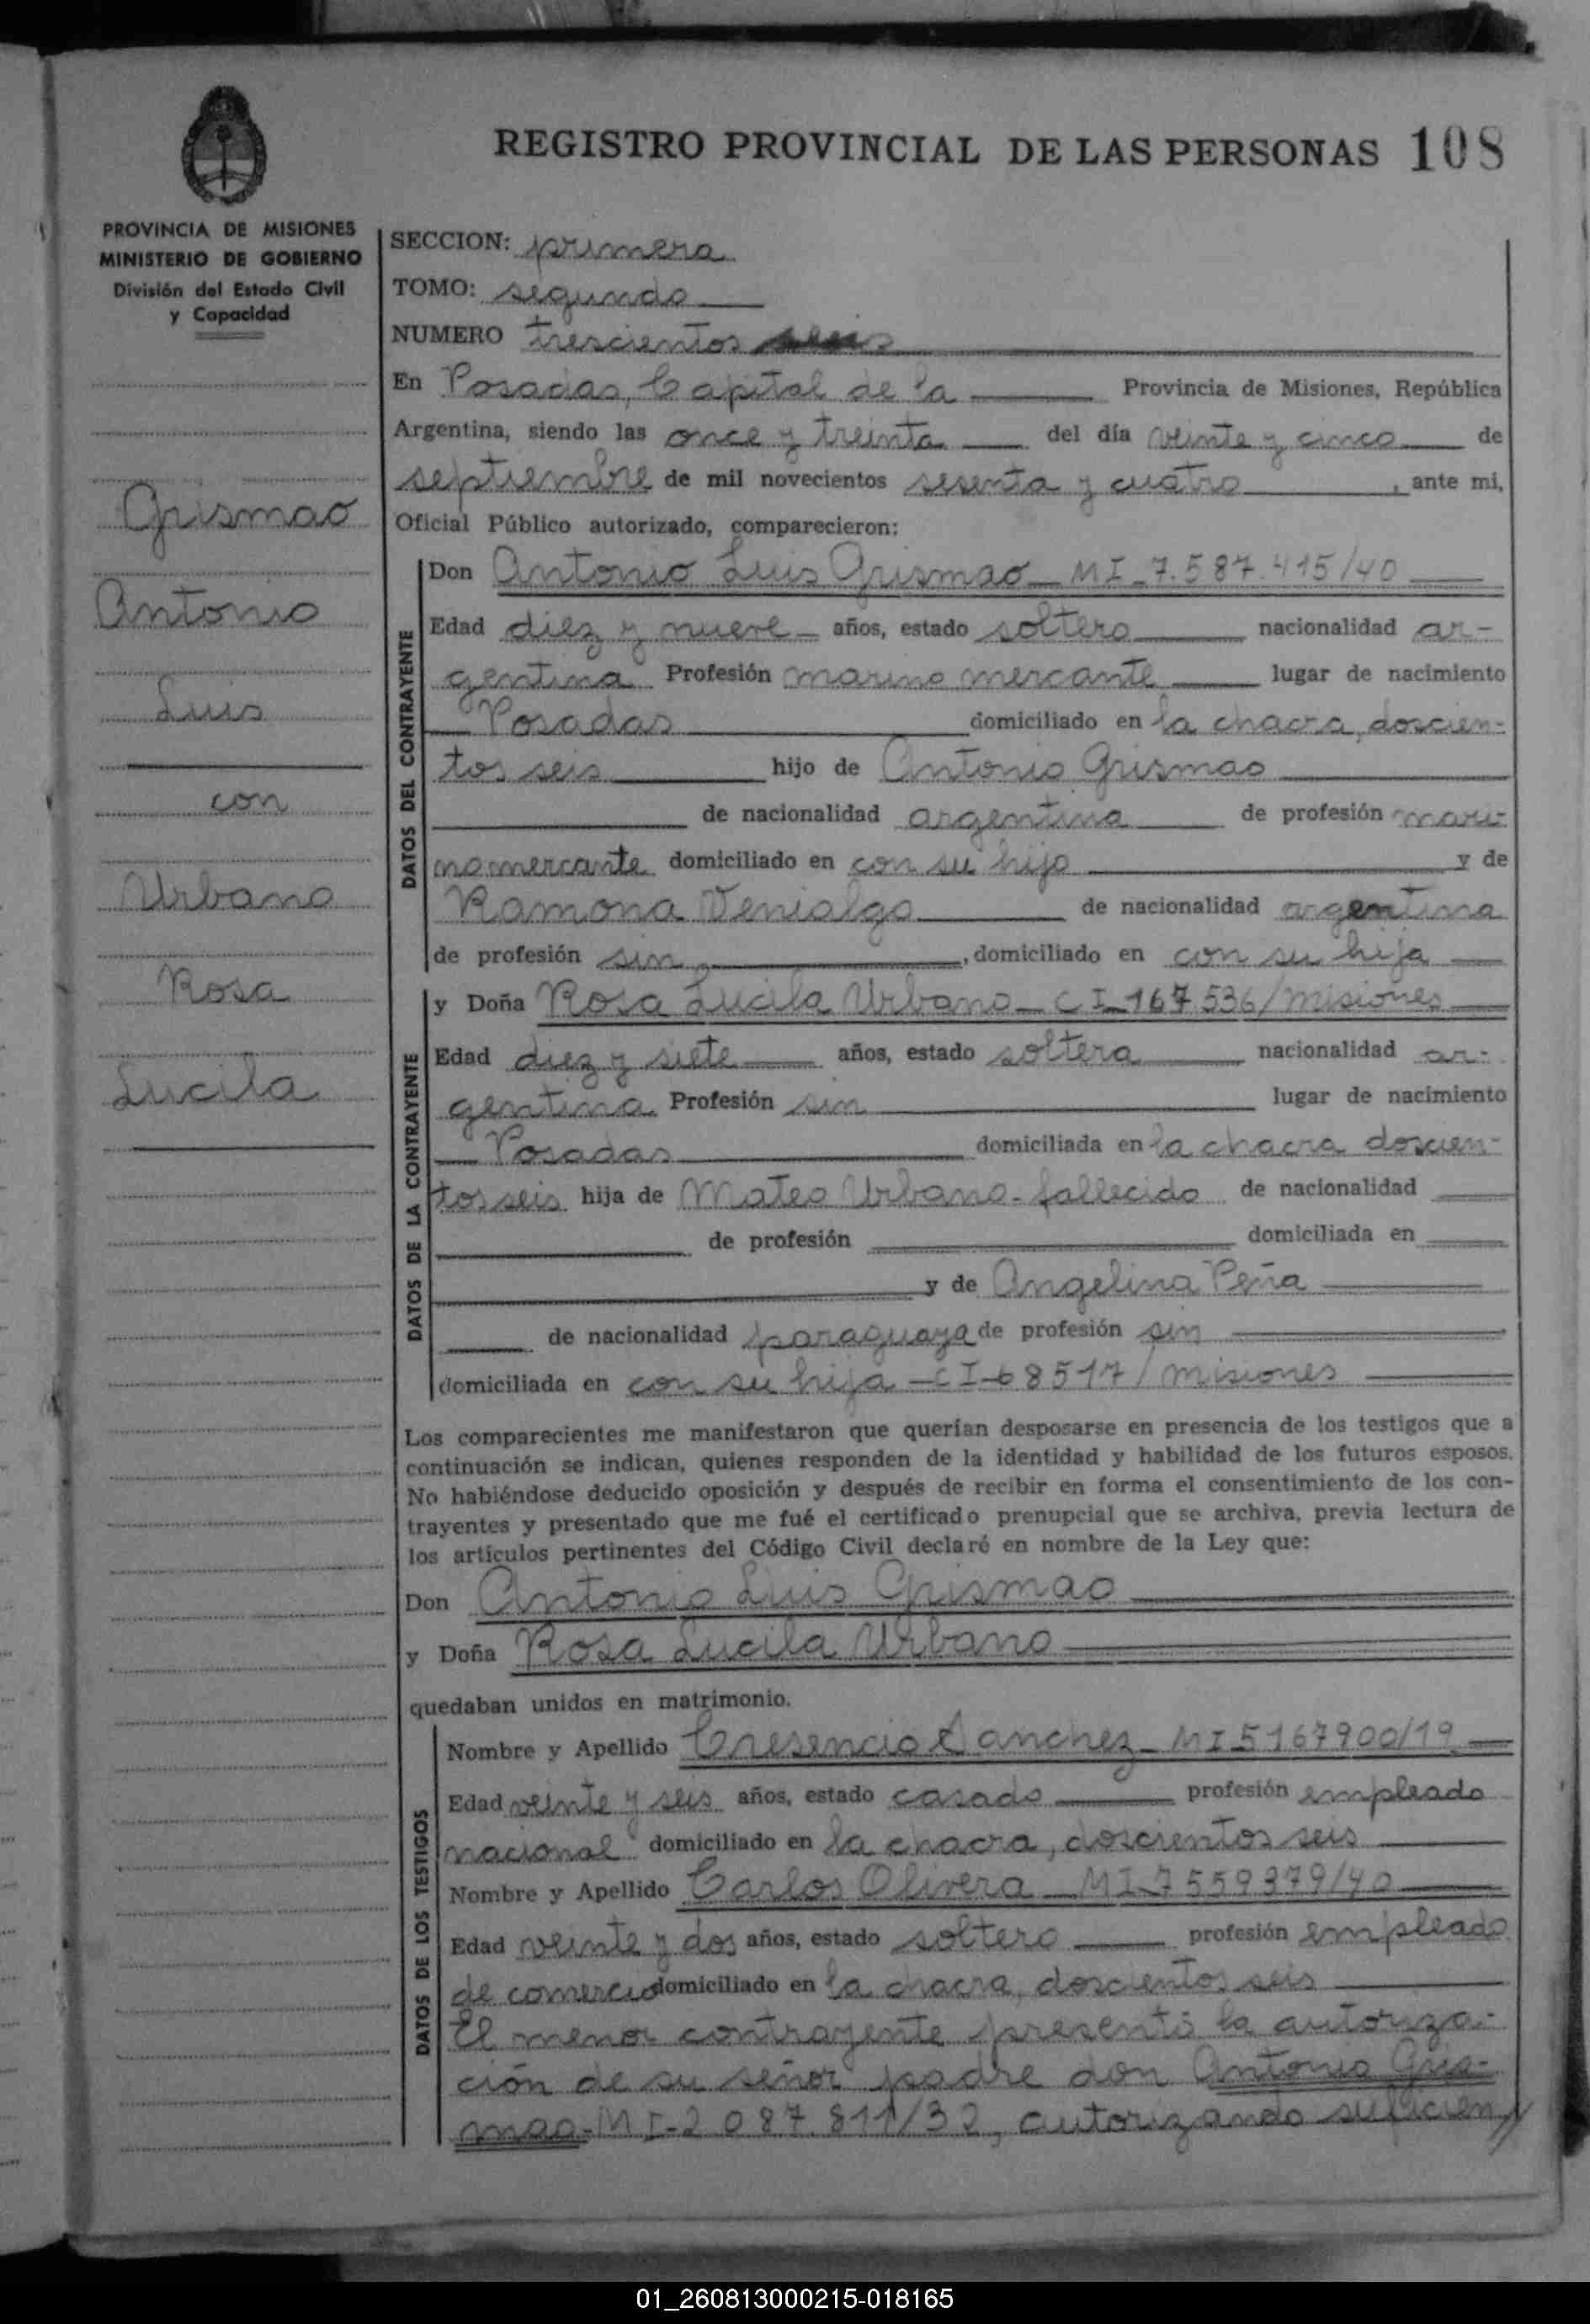 REGISTRO PROVINCIAL DE LAS PERSONAS 108
PROVINCIA DE MISIONES
MINISTERIO DE GOBIERNO
División del Estado Civil
y Capacidad
Grismao
Antonio
Luis
con
Urbano
Rosa
Lucila
SECCION: primera
TOMO: segundo
NUMERO trescientos seis
En Posadas, Capital de la Provincia de Misiones, República
Argentina, siendo las once y treinta del día veinte y cinco de
septiembre de mil novecientos sesenta y cuatro, ante mi,
Oficial Público autorizado, comparecieron:
DATOS DEL CONTRAYENTE
Don Antonio Luis Grismao MI 7.587.415/40
Edad diez y nueve años, estado soltero nacionalidad ar-
gentina Profesión marino mercante lugar de nacimiento
Posadas domiciliado en la chacra, doscien-
tos seis hijo de Antonio Grismao
de nacionalidad argentina de profesión mari-
no mercante domiciliado en con su hijo y de
Ramona Venialgo de nacionalidad argentina
de profesión sin, domiciliado en con su hija
DATOS DE LA CONTRAYENTE
y Doña Rosa Lucila Urbano - CI 167536/Misiones
Edad diez y siete años, estado soltera nacionalidad ar-
gentina Profesión sin lugar de nacimiento
Posadas domiciliada en la chacra doscien-
tos seis hija de Mateo Urbano - fallecido de nacionalidad
de profesión domiciliada en
y de Angelina Peña
de nacionalidad paraguaya de profesión sin
domiciliada en con su hija - CI-68517/Misiones
Los comparecientes me manifestaron que querían desposarse en presencia de los testigos que a
continuación se indican, quienes responden de la identidad y habilidad de los futuros esposos.
No habiéndose deducido oposición y después de recibir en forma el consentimiento de los con-
trayentes y presentado que me fué el certificado prenupcial que se archiva, previa lectura de
los artículos pertinentes del Código Civil declaré en nombre de la Ley que:
Don Antonio Luis Grismao
y Doña Rosa Lucila Urbano
quedaban unidos en matrimonio.
DATOS DE LOS TESTIGOS
Nombre y Apellido Cresencio Sanchez MI 5167900/19
Edad veinte y seis años, estado casado profesión empleado
nacional domiciliado en la chacra, doscientos seis
Nombre y Apellido Carlos Olivera MI 7559379/40
Edad veinte y dos años, estado soltero profesión empleado
de comercio domiciliado en la chacra, doscientos seis
El menor contrayente presentó la autoriza-
ción de su señor padre don Antonio Gris-
mao-MI-2087.811/32, autorizando suficien//
01_260813000215-018165